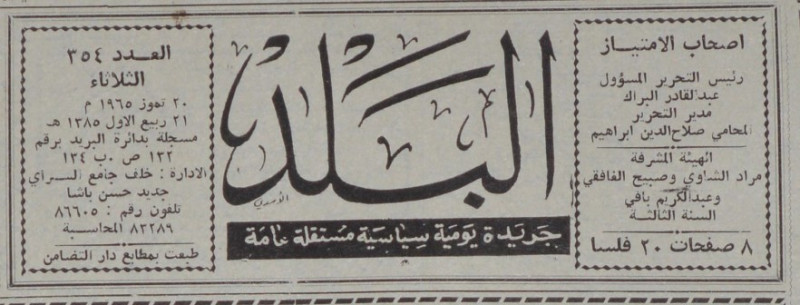 اصحاب الامتياز
رئيس التحرير المسؤول
عبدالقادر البراك
مدير التحرير
المحامي صلاح الدين ابراهيم
الهيئة المشرفة
مراد الشاوي وصبيح الغافقي
وعبدالكريم بافي
السنة الثالثة
٨ صفحات ٢٠ فلسا
البلد
جريدة يومية سياسية مستقلة عامة
العدد ٣٥٤
الثلاثاء
٢٠ تموز ١٩٦٥ م
٢١ ربيع الاول ١٣٨٥ هـ
مسجلة بدائرة البريد برقم
١٣٢ ص.ب ١٣٤
الادارة : خلف جامع السراي
جديد حسن باشا
تلفون رقم : ٨٦٦٠٥
٨٢٢٨٩ المحاسبة
طبعت بمطابع دار التضامن